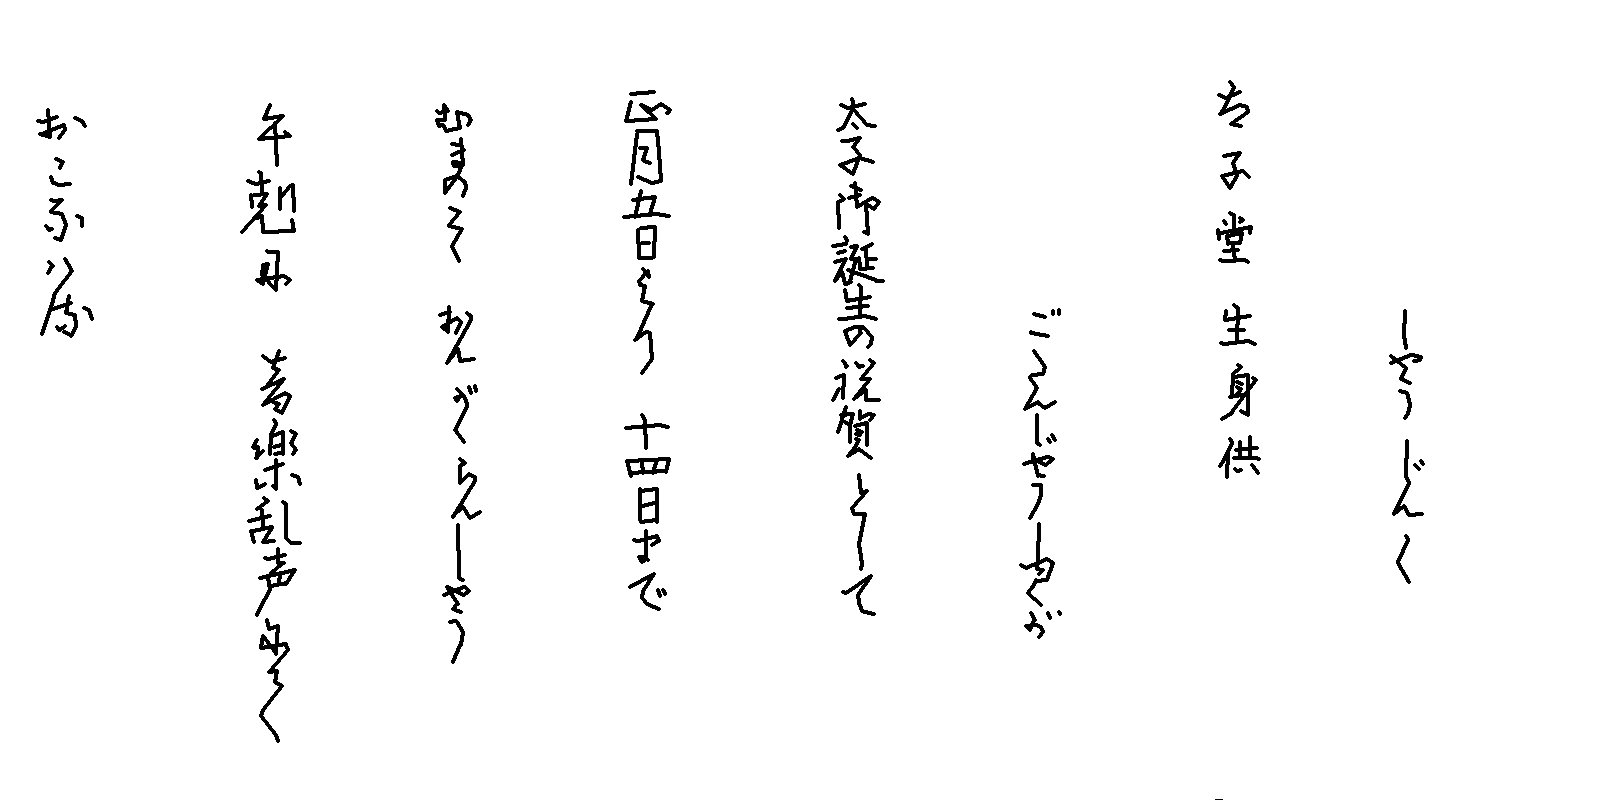 しやうじんく
太子堂 生身供
ごたんじやうしゆくが
太子御誕生の祝賀として
正月五日より 十四日まで
むまのこく おんがくらんしやう
午剋に 音楽乱声にて
おこなはる